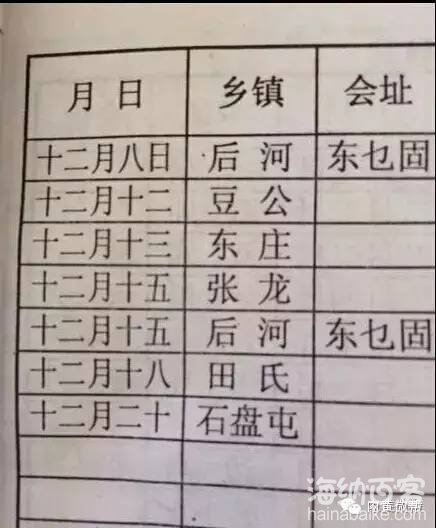 月 日 乡镇 会址
十二月八日 后 河 东乜固
十二月十二 豆 公
十二月十三 东 庄
十二月十五 张 龙
十二月十五 后 河 东乜固
十二月十八 田 氏
十二月二十 石盘屯
海纳百客
hainabaike.com